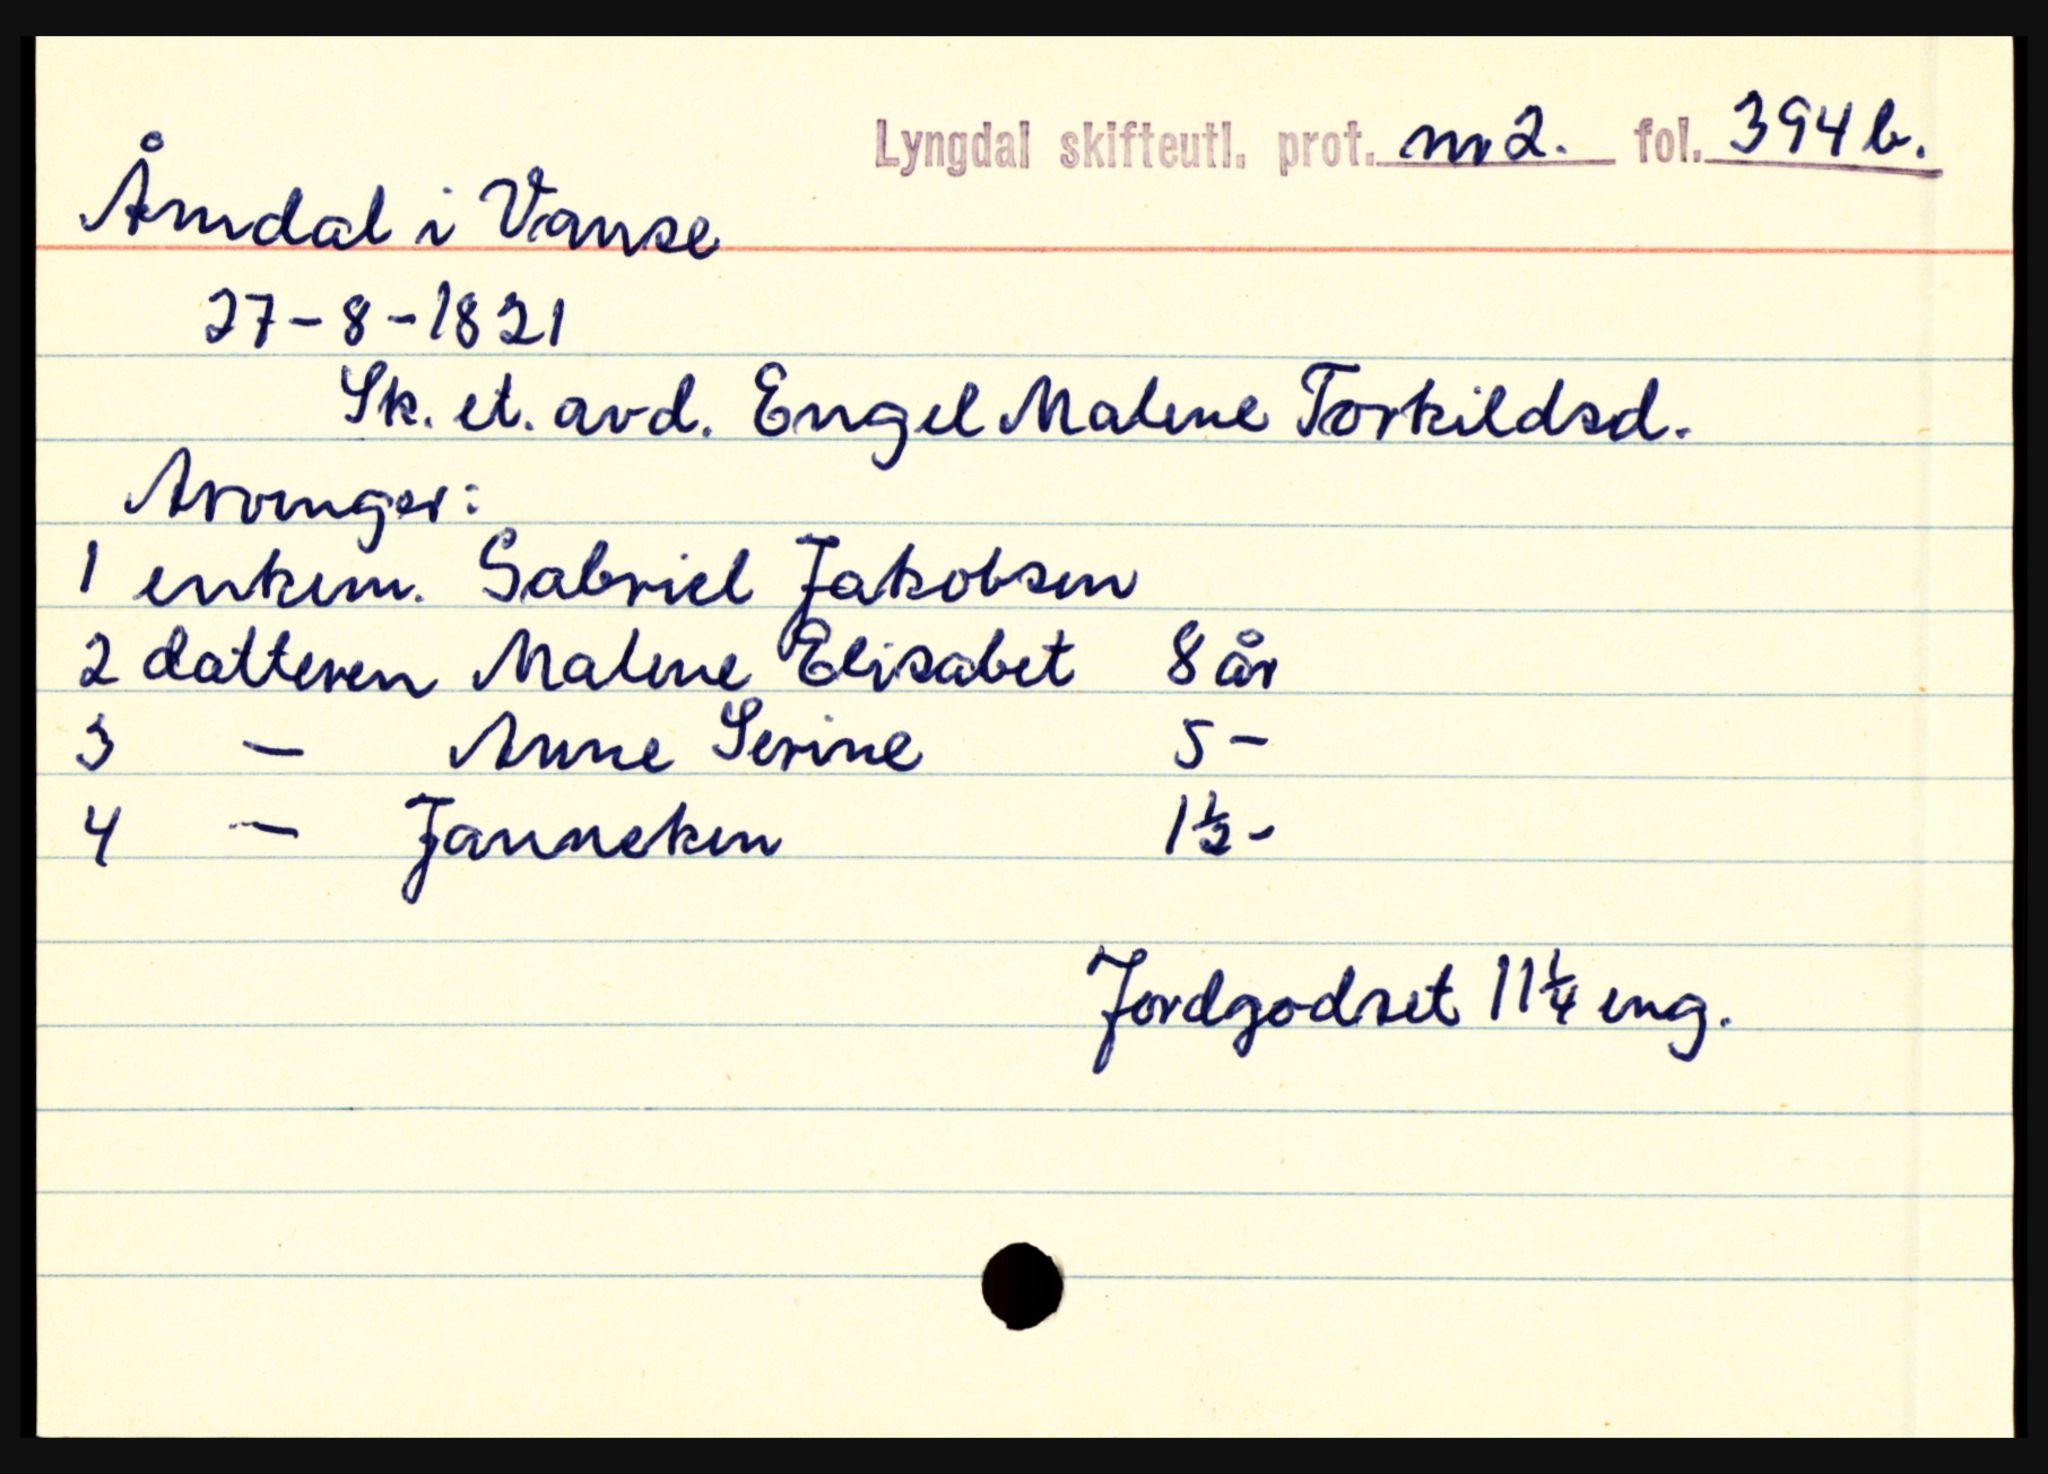 Lyngdal skifteutl. prot. nr 2. fol. 394 b.
Åmdal i Vanse
27-8-1821
Sk. et. avd. Engel Malene Torkildsd.
Arvinger:
1 enkem. Gabriel Jakobsen
2 datteren Malene Elisabet 8 år
3 — Anne Serine 5 -
4 — Janneken 1½ -
Jordgodset 11¼ eng.